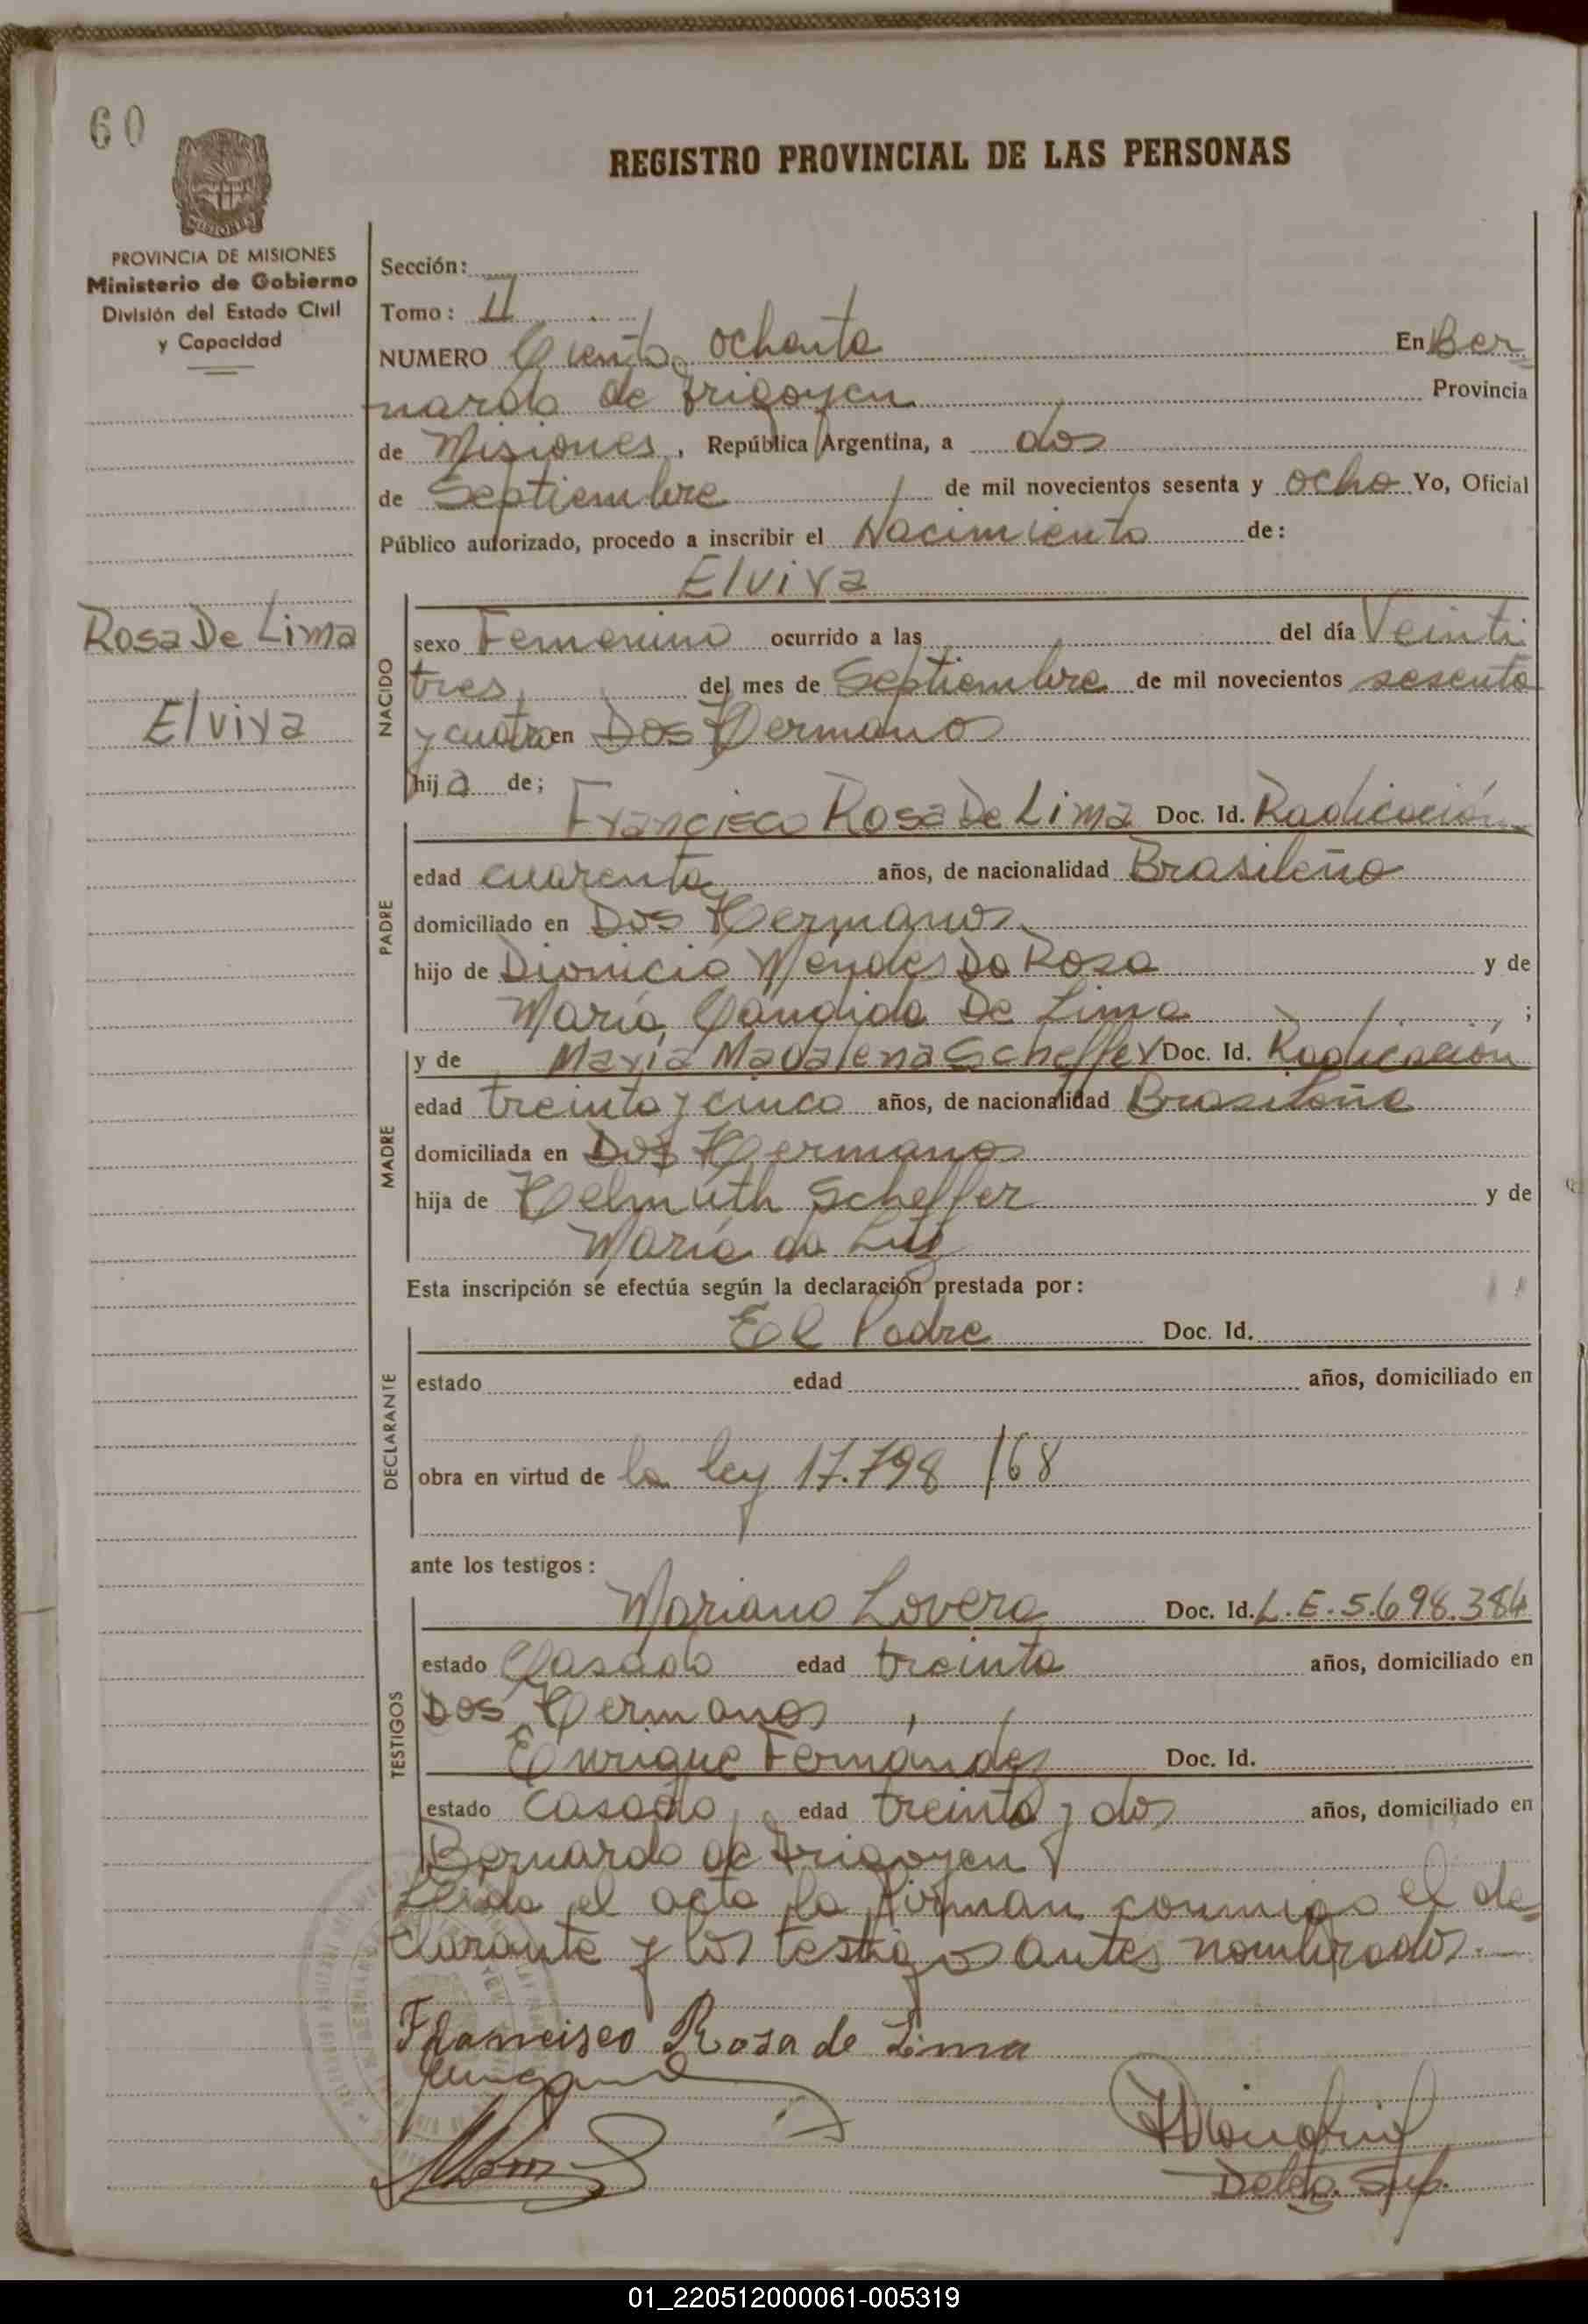 60
REGISTRO PROVINCIAL DE LAS PERSONAS
MISIONES
PROVINCIA DE MISIONES
Ministerio de Gobierno
División del Estado Civil
y Capacidad
Rosa De Lima
Elvira
Sección:
Tomo: II
NUMERO Ciento ochenta En Ber
nardo de Irigoyen Provincia
de Misiones, República Argentina, a dos
de Septiembre de mil novecientos sesenta y ocho Yo, Oficial
Público autorizado, procedo a inscribir el Nacimiento de:
Elvira
NACIDO
sexo Femenino ocurrido a las del día Veinti
tres del mes de Septiembre de mil novecientos sesenta
y cuatro en Dos Hermanos
hija de;
PADRE
Francisco Rosa De Lima Doc. Id. Radicación
edad cuarenta años, de nacionalidad Brasileño
domiciliado en Dos Hermanos
hijo de Dionicio Mendes Da Rosa y de
María Cándida De Lima ;
MADRE
y de María Madalena Scheffer Doc. Id. Radicación
edad treinta y cinco años, de nacionalidad Brasileña
domiciliada en Dos Hermanos
hija de Helmuth Scheffer y de
María da Luz
Esta inscripción se efectúa según la declaración prestada por:
DECLARANTE
El Padre Doc. Id.
estado edad años, domiciliado en
obra en virtud de la ley 17.798 /68
ante los testigos:
TESTIGOS
Mariano Lovera Doc. Id. L.E.5.698.384
estado Casado edad treinta años, domiciliado en
Dos Hermanos
Enrique Fernández Doc. Id.
estado Casado edad treinta y dos años, domiciliado en
Bernardo de Irigoyen
Leida el acta la firman conmigo el de=
clarante y los testigos antes nombrados.-
Francisco Rosa de Lima
Deleg. Sup.
01_220512000061-005319